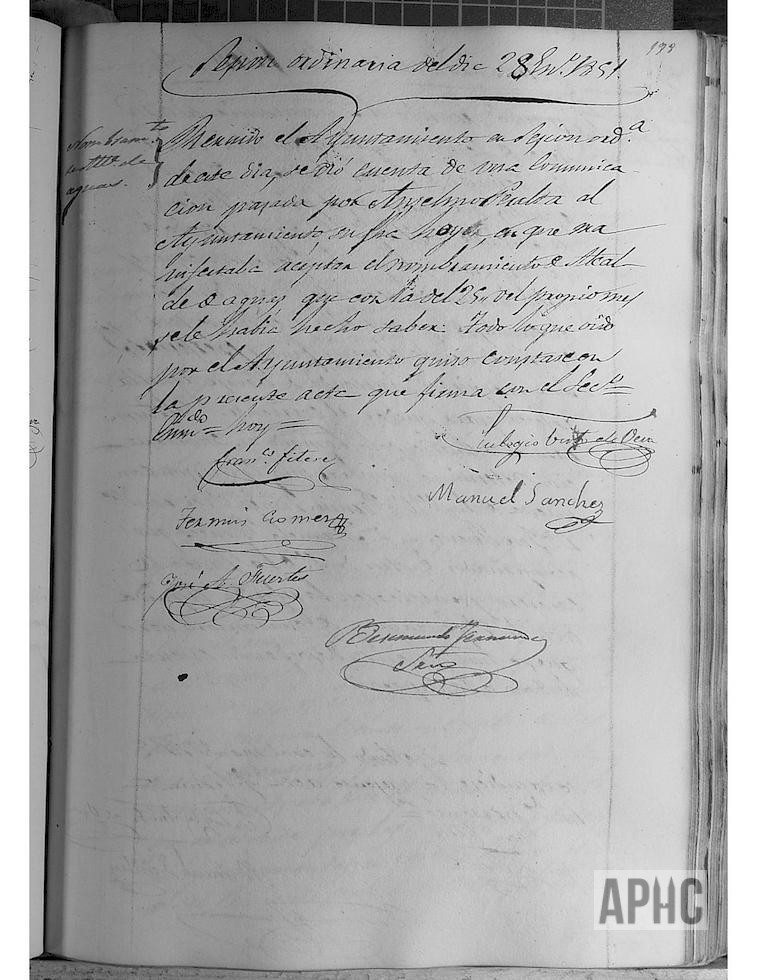 198
Sesion ordinaria del dia 28 En.º 1851.
Nombram.to
de
aguas.
Reunido el Ayuntamiento en Sesion ord.a
de este dia, se dió cuenta de una Comunica-
cion pasada por Anselmo Peralta al
Ayuntamiento, en fha hoy, en que ma
nifestaba aceptar el nombramiento de Alcal-
de de aguas que con fha del 25,, del propio mes
se le había hecho saber. Todo lo que oido
por el Ayuntamiento quiso constase en
la presente acta que firma con el Sec.º=
Enm.do= hoy=
Eulogio
Fran.co Fitere
Manuel Sanchez
Fermin Gomez
José A. Fuertes
Beremundo
Saiz
APHC